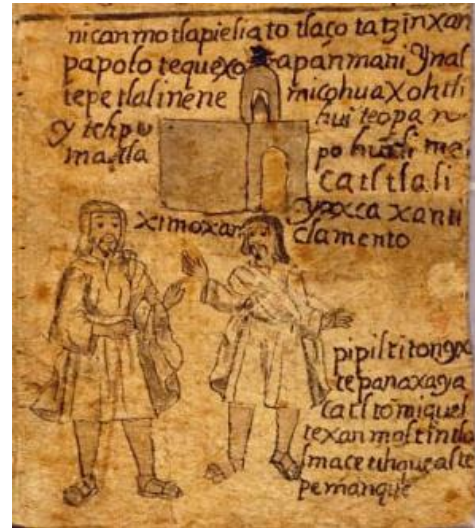 nican motlapielia to tlaço tatzin xan
papolo tequexo apan mani ynal
tepe tlali nene micohua xohtli
y tehpu hui teopan
ma tla pohu tli me
catl tlali
ypxca xanti
ximoxan clamento
pipiltitongx
tepanaxaya
catl to miguel
texan mastin tla
smaceuhque alte
pemanque